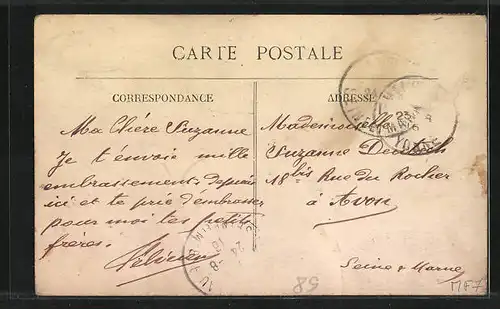 CARTE POSTALE
CORRESPONDANCE
Ma Chère Suzanne
Je t'envoie mille
embrassements depuis
ici et te prie d'embrasser
pour moi tes petits
frères.
ADRESSE
Mademoiselle
Suzanne
18 bis Rue du Rocher
à Avon
Seine & Marne
58